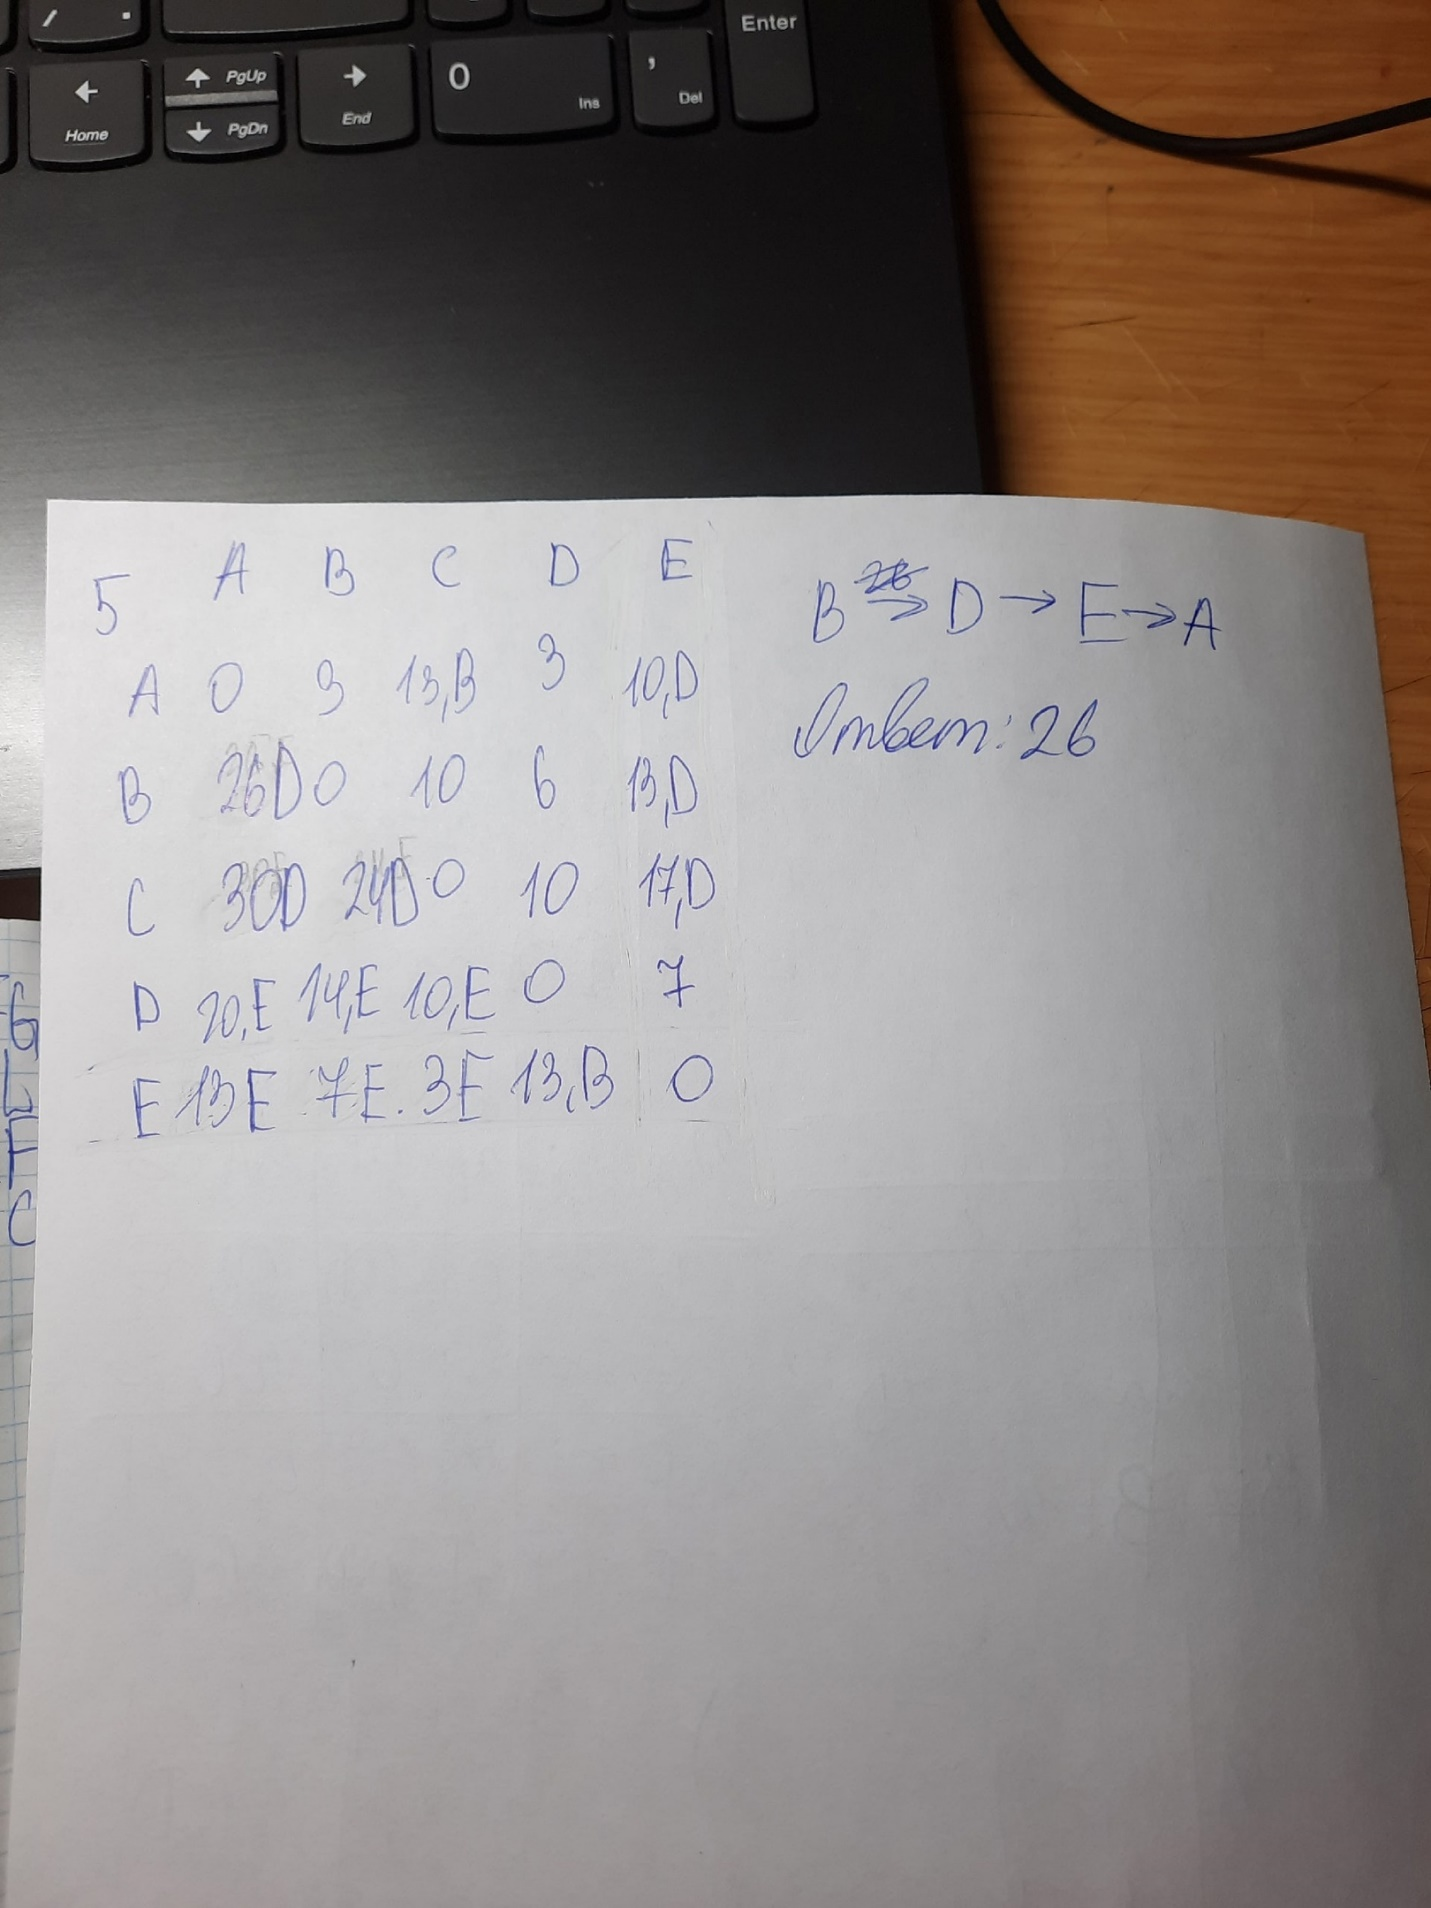 / .
Enter
← Home
↑ PgUp
↓ PgDn
→ End
0 Ins
, Del
5 A B C D E
A 0 9 13,B 3 10,D
B 26D 0 10 6 13,D
C 30D 24D 0 10 17,D
D 20,E 14,E 10,E 0 7
E 13E 7E. 3E 13,B 0
B → D → E → A
Ответ: 26